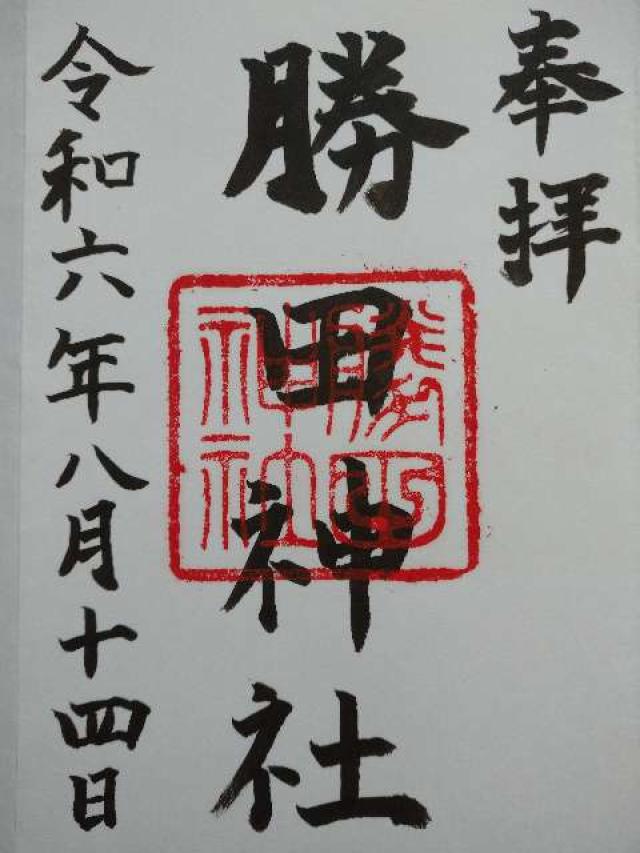 奉拝
勝田神社
勝田神社
令和六年八月十四日